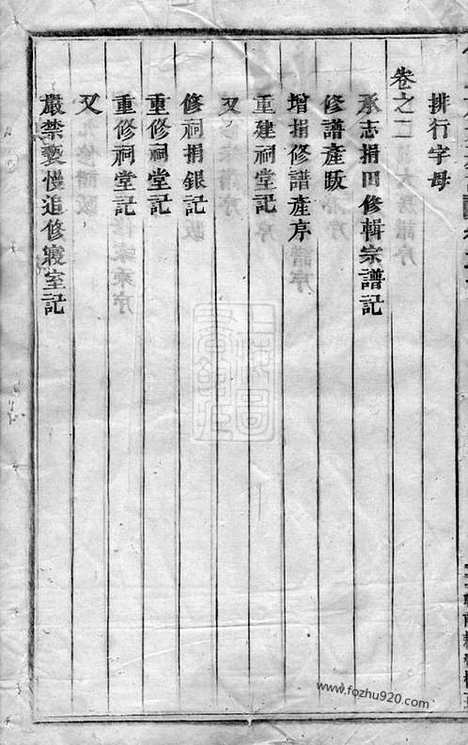 排行字母
卷之二
承志捐田修輯宗譜記
修譜產跋
增捐修譜產序
重建祠堂記
又
修祠捐銀記
重修祠堂記
重修祠堂記
又
嚴禁褻慢追修寢室記
www.fozhu920.com